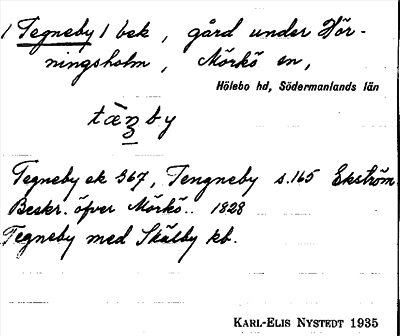 / Tegneby / bek, gård under Hör-
ningsholm, Mörkö sn,
Hölebo hd, Södermanlands län
tàʒby
Tegneby ek 367, Tengneby s. 165 Ekström
Beskr. öfver Mörkö.. 1828
Tegneby med Skälby kb.
KARL-ELIS NYSTEDT 1935